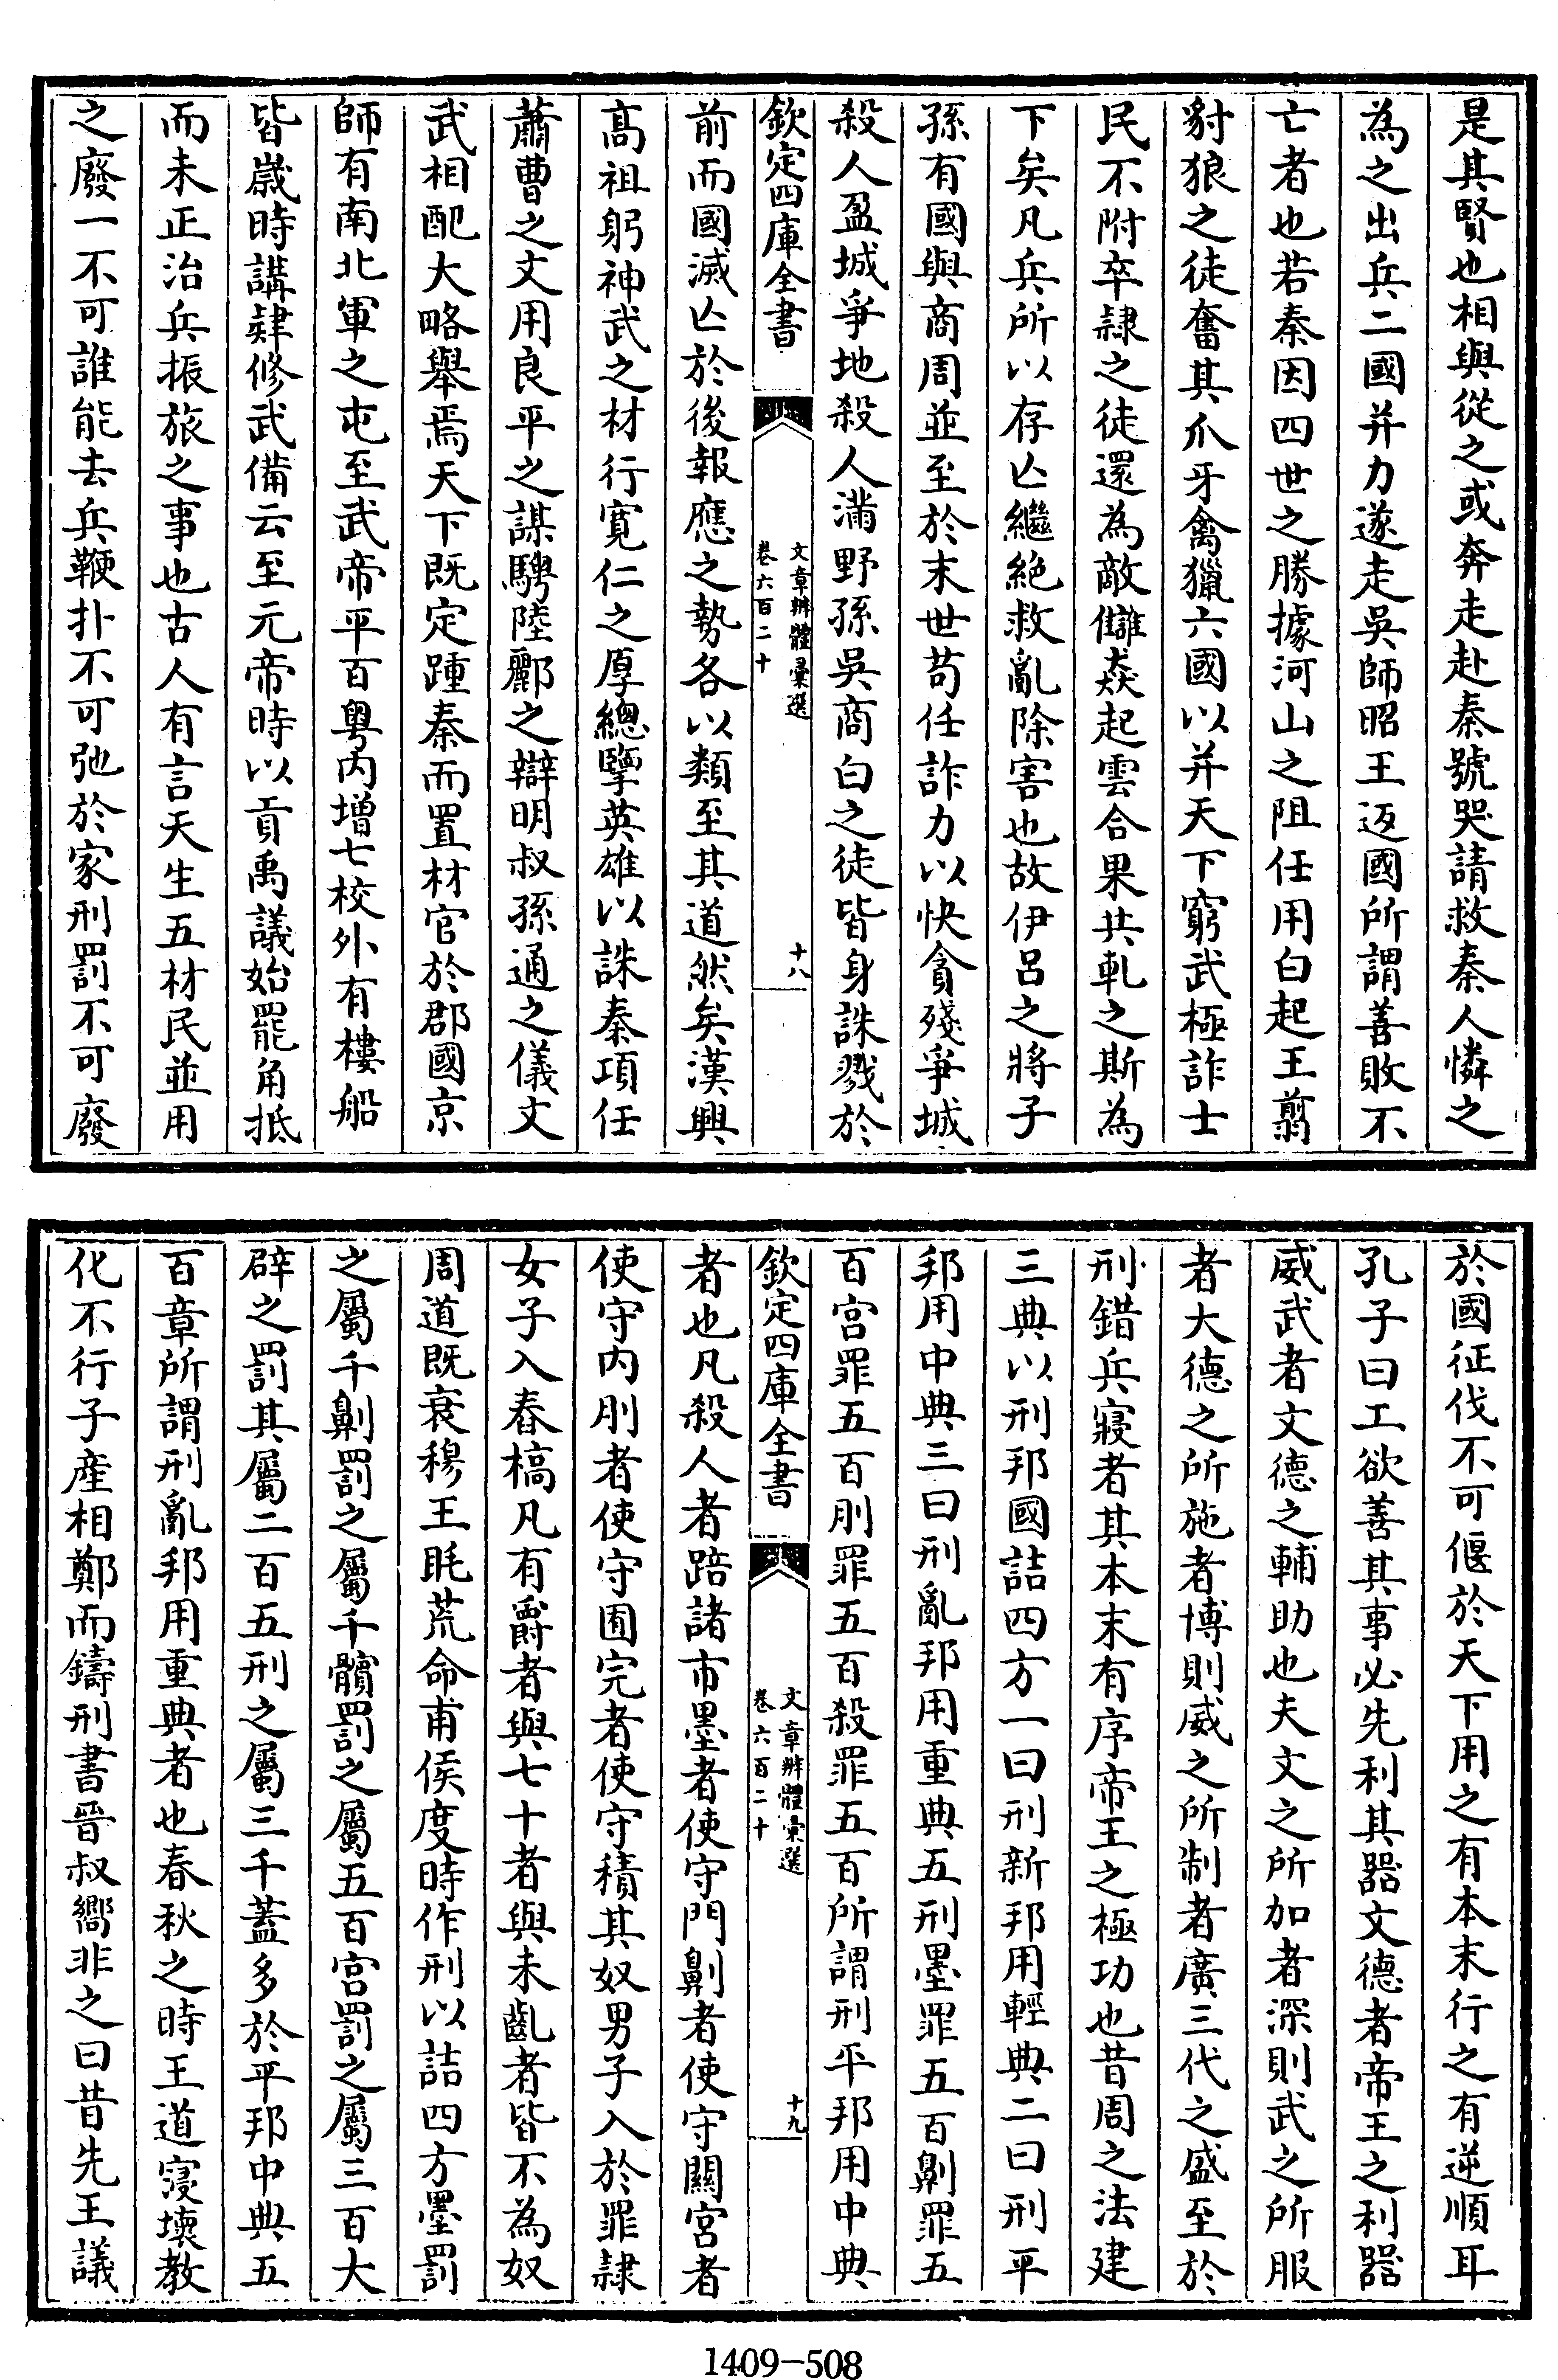 是其賢也相與從之或奔走赴秦號哭請救秦人憐之
為之出兵二國并力遂走吳師昭王返國所謂善敗不
亡者也若秦因四世之勝據河山之阻任用白起王翦
豺狼之徒奮其爪牙禽獵六國以并天下窮武極詐士
民不附卒隷之徒還為敵讎猋起雲合果共軋之斯為
下矣凡兵所以存亡繼絶救亂除害也故伊呂之將子
孫有國與商周並至於末世苟任詐力以快貪殘爭城
殺人盈城爭地殺人滿野孫吳商白之徒皆身誅戮於
欽定四庫全書
文章辨體彙選
卷六百二十
十八
前而國滅亡於後報應之勢各以類至其道然矣漢興
高祖躬神武之材行寛仁之厚總擥英雄以誅秦項任
蕭曹之文用良平之謀騁陸酈之辯明叔孫通之儀文
武相配大略舉焉天下既定踵秦而置材官於郡國京
師有南北軍之屯至武帝平百粤内增七校外有樓船
皆嵗時講肄修武備云至元帝時以貢禹議始罷角抵
而未正治兵振旅之事也古人有言天生五材民並用
之廢一不可誰能去兵鞭扑不可弛於家刑罰不可廢
於國征伐不可偃於天下用之有本末行之有逆順耳
孔子曰工欲善其事必先利其器文德者帝王之利器
威武者文德之輔助也夫文之所加者深則武之所服
者大德之所施者博則威之所制者廣三代之盛至於
刑錯兵寢者其本末有序帝王之極功也昔周之法建
三典以刑邦國詰四方一曰刑新邦用輕典二曰刑平
邦用中典三曰刑亂邦用重典五刑墨罪五百劓罪五
百宫罪五百刖罪五百殺罪五百所謂刑平邦用中典
欽定四庫全書
文章辨體彙選
卷六百二十
十九
者也凡殺人者踣諸市墨者使守門劓者使守關宮者
使守内刖者使守囿完者使守積其奴男子入於罪隷
女子入舂槁凡有爵者與七十者與未齔者皆不為奴
周道既衰穆王眊荒命甫侯度時作刑以詰四方墨罰
之屬千劓罰之屬千髕罰之屬五百宮罰之屬三百大
辟之罰其屬二百五刑之屬三千蓋多於平邦中典五
百章所謂刑亂邦用重典者也春秋之時王道寖壞教
化不行子產相鄭而鑄刑書晉叔嚮非之曰昔先王議
1409-508